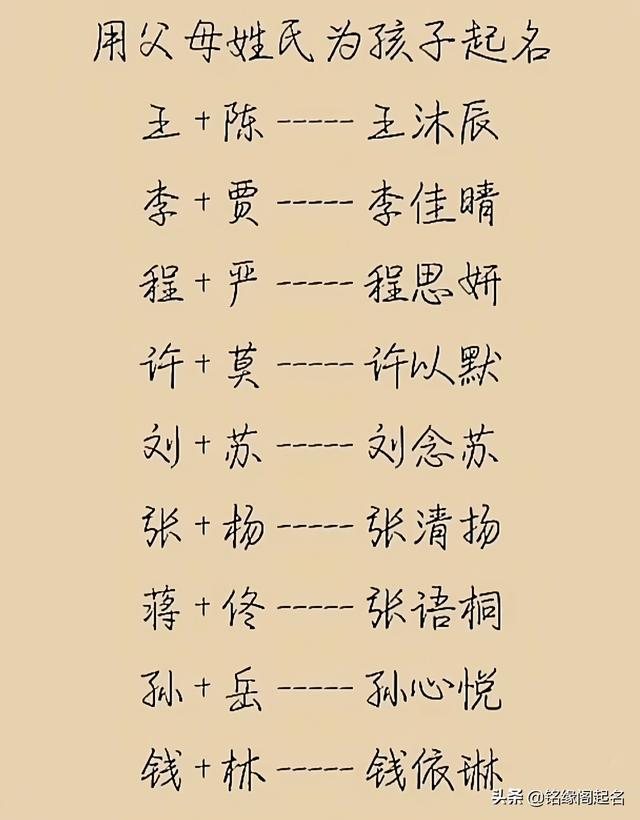 用父母姓氏为孩子起名
王+陈-----王沐辰
李+贾-----李佳晴
程+严-----程思妍
许+莫-----许以默
刘+苏-----刘念苏
张+杨-----张清扬
蒋+佟-----张语桐
孙+岳-----孙心悦
钱+林-----钱依琳
头条 @铭缘阁起名